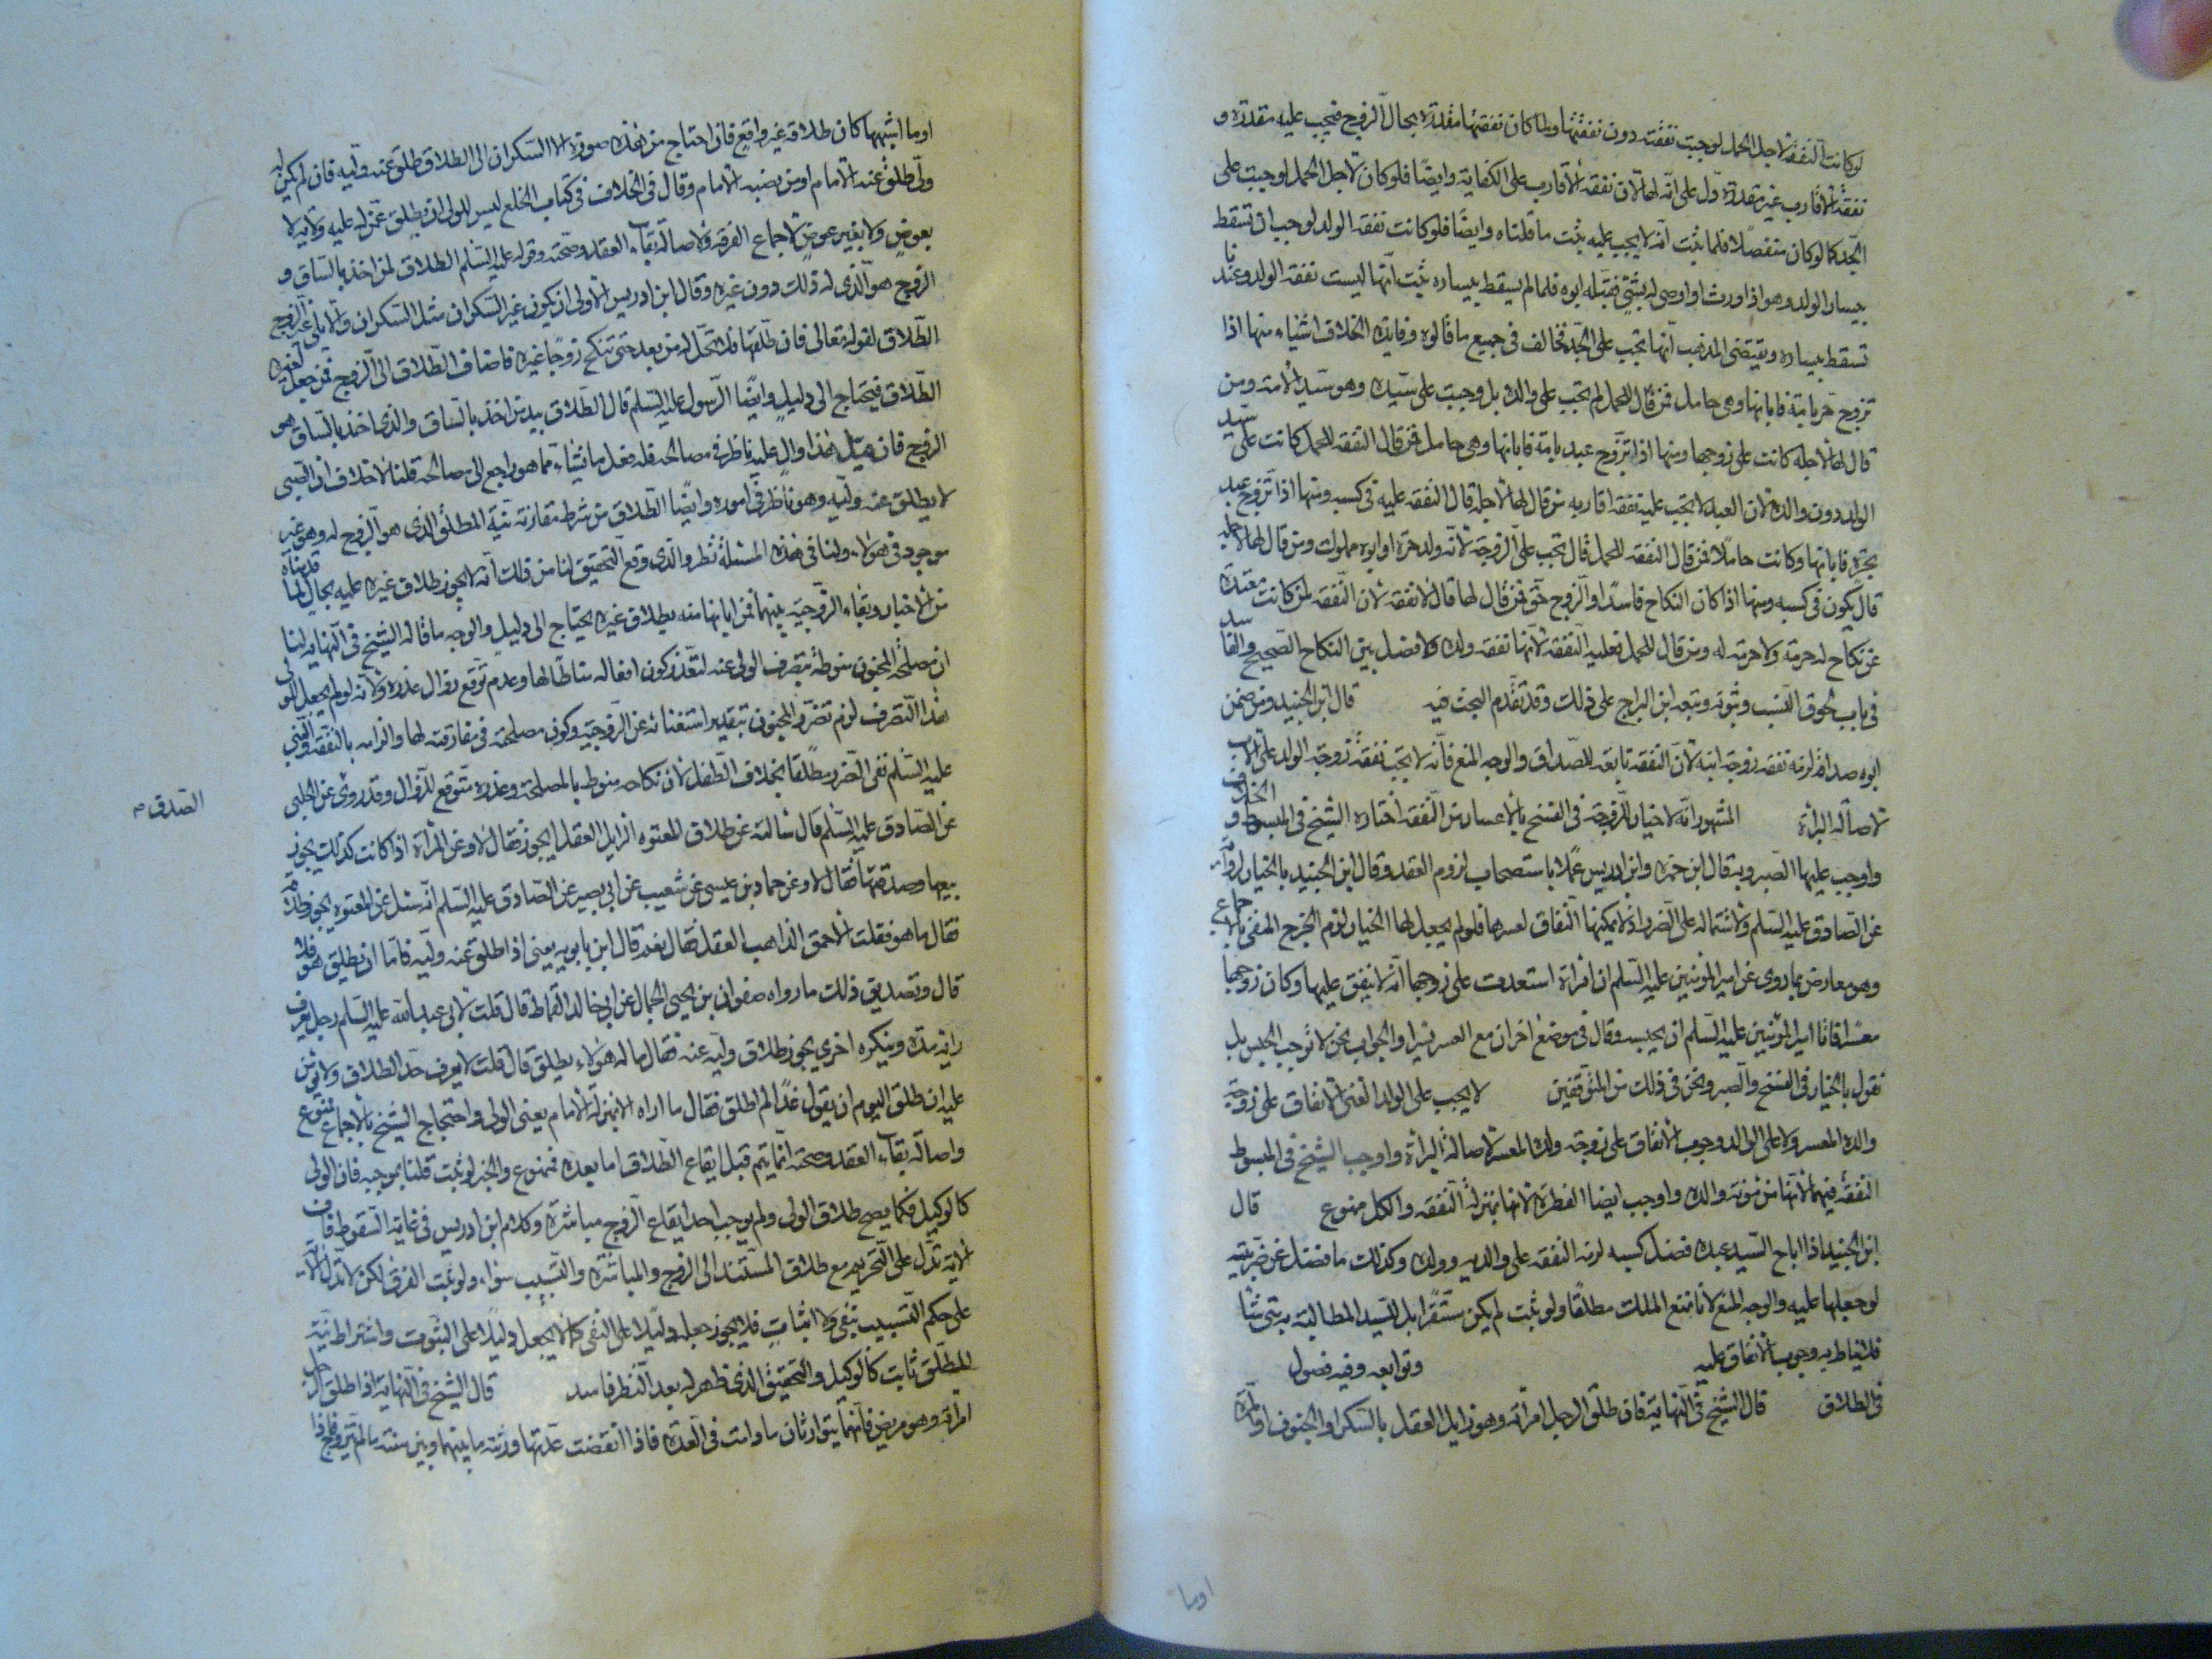 لو كانت النفقة لاجل الحمل لوجبت نفقته دون نفقتها ولما كان نفقتها مقدرة بحال الزوج فيجب عليه مقدرة و
نفقة الاقارب غير مقدرة دل على انه لها لان نفقة الاقارب على الكفاية وايضا فلو كان لاجل الحمل لوجبت على
الجد كما لو كان منفصلا فلما ثبت انه لا يجب عليه ثبت ما قلناه وايضا فلو كانت نفقة الولد لوجب ان تسقط
بيسار الولد وهو اذا ورث او اوصى له بشئ فقبله ابوه فلما لم يسقط بيساره ثبت انها ليست نفقة الولد وعندنا
تسقط بيساره ويقتضى المذهب انها تجب على الجد فخالف في جميع ما قالوه وفايدة الخلاف اشياء منها اذا
تزوج حر بامة فابانها وهى حامل فمن قال للحمل لم تجب على والده بل وجبت على سيده وهو سيد الامة ومن
قال لها لاجله كانت على زوجها ومنها اذا تزوج عبد بامة فابانها وهى حامل فمن قال النفقة للحمل كانت على سيد
الولد دون والده لان العبد لا تجب عليه نفقة اقاربه من قال لها لاجله قال النفقة عليه في كسبه ومنها اذا تزوج عبد
بحرة فابانها وكانت حاملا فمن قال النفقة للحمل قال تجب على الزوجة لانه ولد حرة وابوه مملوك ومن قال لها لاجله
قال يكون في كسبه ومنها اذا كان النكاح فاسدا والزوج حر فمن قال لها قال لا نفقة لان النفقة لمن كانت معتدة
عن نكاح له حرمة ولا حرمة له ومن قال للحمل فعليه النفقة لانها نفقة ولده ولا فضل بين النكاح الصحيح والفاسد
في باب لحوق النسب وثبوته وتبعه ابن البراج على ذلك وقد تقدم البحث فيه قال ابن الجنيد ومن ضمن
ابوه صداقه لزمه نفقة زوجة ابنه لان النفقة تابعة للصداق والوجه المنع فانه لا يجب نفقة زوجة الولد على الاب
لاصالة البرأة المشهور انه لا خيار للزوجة في الفسخ بالاعسار من النفقة اختاره الشيخ في المبسوط و الخلاف
واوجب عليها الصبر وبه قال ابن حمزة وابن ادريس عملا باستصحاب لزوم العقد وقال ابن الجنيد بالخيار لرواية
عن الصادق عليه السلم ولاشتماله على الضرر اذ لا يمكنها انفاق لعسرها فلو لم يجعل لها الخيار لزم الحرج المنفى بالاجماع
وهو معارض بما روى عن امير المؤمنين عليه السلم ان امراة استعدت على زوجها انه لا ينفق عليها وكان زوجها
معسرا فابا امير المؤمنين عليه السلم ان يحبسه وقال في موضع اخر ان مع العسر يسرا والجواب نحن لا نوجب الحبس بل
نقول بالخيار في الفسخ والصبر ونحن في ذلك من المتوقفين لا يجب على الولد الغنى الانفاق على زوجة
والده المعسر ولا على الوالد وجوب الانفاق على زوجة ولده المعسر لاصالة البرأة واوجب الشيخ في المبسوط
النفقة فيهما لانها من مؤنة والده واوجب ايضا الفطرة لانها بمنزلة النفقة والكل ممنوع قال
ابن الجنيد اذا اباح السيد عبده فضل كسبه لزمه النفقة على والديه وولده وكذلك ما فضل عن ضريبته
لو جعلها عليه والوجه المنع لانا نمنع الملك مطلقا ولو ثبت لم يكن مستقرا بل للسيد المطالبة به متى شا
فلا يناط به وجوب الانفاق عليه وتوابعه وفيه فصول
في الطلاق قال الشيخ في النهاية فان طلق الرجل امرأته وهو زايل العقل بالسكر او الجنون او المرة
اوما
اوما اشبهها كان طلاقه غير واقع فان احتاج من هذه صورته الا السكران الى الطلاق طلق عنه وليه فان لم يكن له
ولى طلق عنه الامام او من نصبه الامام وقال في الخلاف في كتاب الخلع ليس للولى ان يطلق عمن له عليه ولاية لا
بعوض ولا بغير عوض لاجماع الفرقة ولاصالة بقاء العقد وصحته وقوله عليه السلم الطلاق لمن اخذ بالساق و
الزوج هو الذى له ذلك دون غيره وقال ابن ادريس الاولى ان يكون غير السكران مثل السكران ولا يلى غير الزوج
الطلاق لقوله تعالى فان طلقها فلا تحل له من بعد حتى تنكح زوجا غيره فاضاف الطلاق الى الزوج فمن جعل لغيره
الطلاق فيحتاج الى دليل وايضا الرسول عليه السلم قال الطلاق بيد من اخذ بالساق والذى اخذ بالساق هو
الزوج فان قيل هذا وال عليه ناظر في مصالحه فله فعل ما شاء مما هو راجع الى مصالحه قلنا لا خلاف ان الصبى
لا يطلق عنه وليه وهو ناظر في اموره وايضا الطلاق من شرط مقارنته نية المطلق الذى هو الزوج له وهو غير
موجود في هؤلاء ولنا في هذه المسئلة نظر والذى وقع التحقيق لنا من ذلك انه لا يجوز طلاق غيره عليه بحال لما قدمناه
من الاخبار وبقاء الزوجية بينهما فمن ابانها منه بطلاق غيره يحتاج الى دليل والوجه ما قاله الشيخ في النهاية لنا
ان مصلحة المجنون منوطة بتصرف الولى عنه لتعذر كون افعاله مناطا لها وعدم توقع زوال عذره ولانه لو لم يجعل للولى
هذا التصرف لزم تضرر المجنون بتقدير استغنائه عن الزوجية وكون مصلحته في مفارقته لها والزامه بالنفقة
عليه السلم نفى الضرر مطلقا بخلاف الطفل لان نكاحه منوط بالمصلحة وعذره متوقع للزوال وقد روى عن الحلبى
عن الصادق عليه السلم قال سألته عن طلاق المعتوه الزايل العقل ايجوز فقال لا وعن المرأة اذا كانت كذلك يجوز
بيعها وصدقتها فقال لا وعن حماد بن عيسى عن شعيب عن ابى بصير عن الصادق عليه السلم انه سئل عن المعتوه يجوز طلاقه
فقال ما هو فقلت الاحمق الذاهب العقل فقال نعم قال ابن بابويه يعنى اذا طلق عنه وليه فاما ان يطلق هو فلا
قال وتصديق ذلك ما رواه صفوان بن يحيى الجمال عن ابى خالد القماط قال قلت لابى عبد الله عليه السلم رجل يعرف
رايه مرة وينكره اخرى يجوز طلاق وليه عنه فقال ما له هؤلاء يطلق قال قلت لا يعرف حد الطلاق ولا يؤمن
عليه ان طلق اليوم ان يقول غدا لم اطلق فقال ما اراه الا بمنزلة الامام يعنى الولى واحتجاج الشيخ بالاجماع ممنوع
واصالة بقاء العقد وصحته انما يتم قبل ايقاع الطلاق اما بعده فممنوع والخبر لو ثبت قلنا بموجبه فان الولى
كالوكيل فكما يصح طلاق الولى ولم يوجب احد ايقاع الزوج مباشرة وكلام ابن ادريس في غاية السقوط فان
الاية تدل على التحريم مع طلاق المستند الى الزوج والمباشرة والتسبيب سواء ولو ثبت الفرق لكن لا تدل الاية
على حكم التسبيب بنفى ولا اثبات فلا يجوز جعله دليلا على النفى كما لا يجعل دليلا على الثبوت واشتراط نية
المطلق ثابت كالوكيل والتحقيق الذى ظهر له بعد النظر فاسد قال الشيخ في النهاية اذا طلق الرجل
امرأته وهو مريض فانهما يتوارثان ما دامت في العدة فاذا انقضت عدتها ورثته ما بينهما وبين سنة ما لم تتزوج فاذا
الصدق